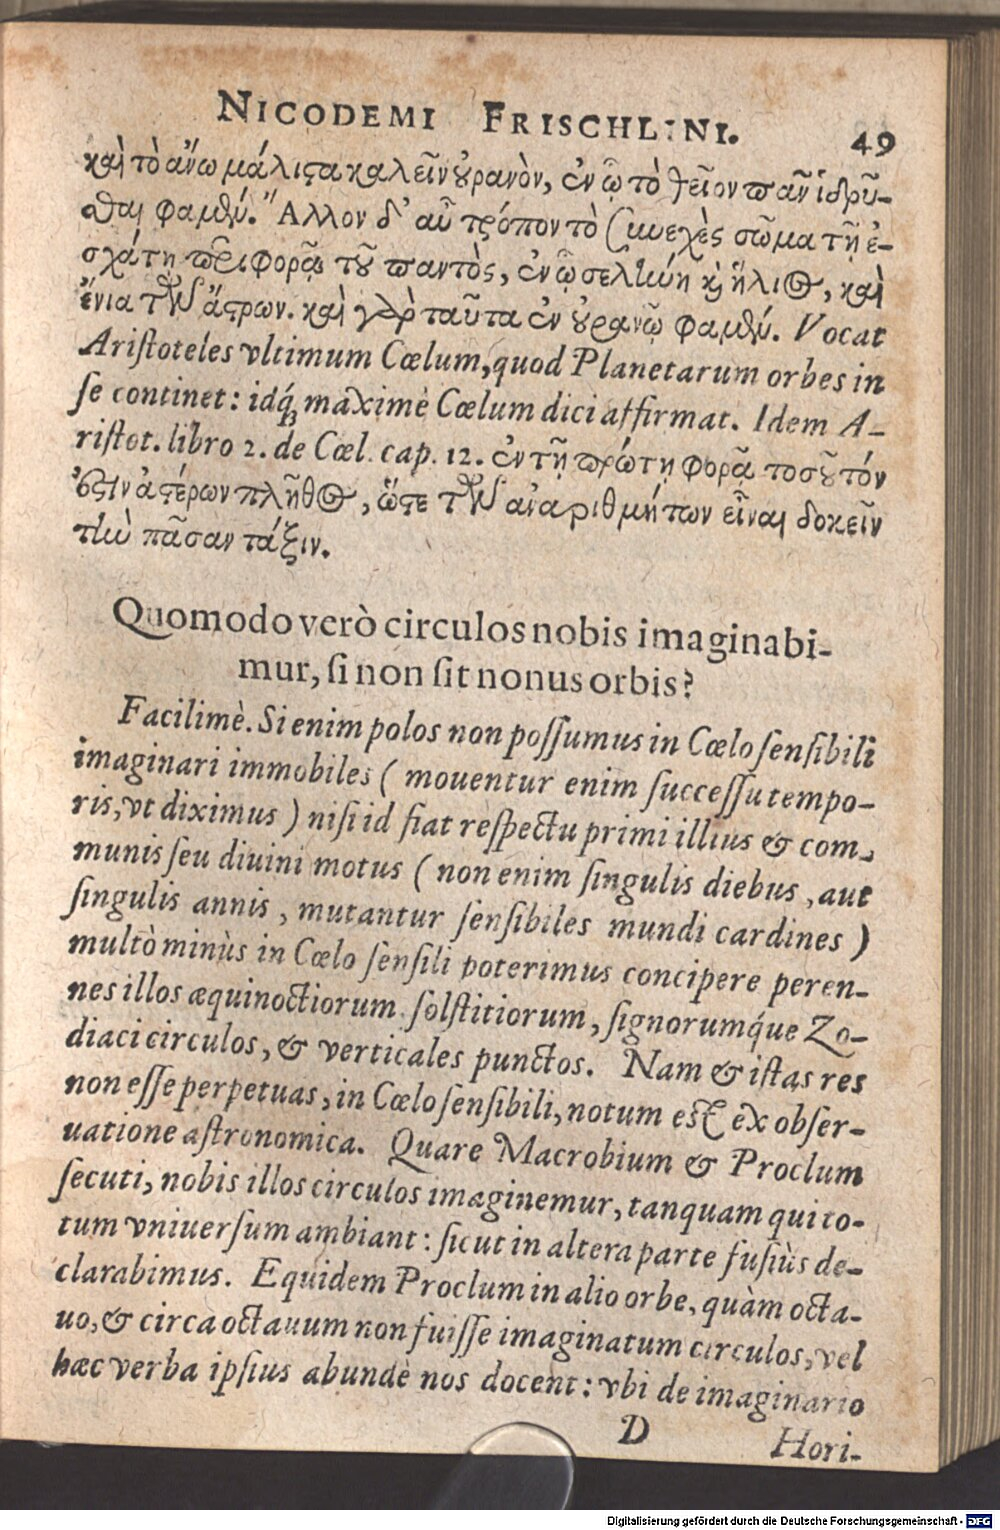 NICODEMI FRISCHLINI. 49
καὶ τὸ ἄνω μάλιϛα καλεῖν ȣ̓ρανὸν, ἐν ᾧ τὸ θεῖον πᾶν ἱδρῦ-
σθαι φαμὲν. Ἄλλον δ' αὖ τρόπον τὸ συνεχὲς σῶμα τῇ ἐ-
σχάτῃ περιφορᾷ τȣ͂ παντὸς, ἐν ᾧ σελήνη κ̀ ἥλιος, καὶ
ἔνια τῶν ἄϛρων. καὶ γὰρ ταῦτα ἐν ȣ̓ρανῷ φαμὲν. Vocat
Ariſtoteles vltimum Cœlum, quod Planetarum orbes in
ſe continet: idq́ꝫ maximè Cœlum dici affirmat. Idem A-
riſtot. libro 2. de Cœl. cap. 12. ἐν τῇ πρώτῃ φορᾷ τοσȣ͂τόν
ἐϛὶν ἀϛέρων πλῆθος, ὥϛε τῶν ἀναριθμήτων εἶναι δοκεῖν
τὴν πᾶσαν τάξιν.
Quomodo verò circulos nobis imaginabi-
mur, ſi non ſit nonus orbis?
Facilimè. Si enim polos non poſſumus in Cœlo ſenſibili
imaginari immobiles ( mouentur enim ſucceſſu tempo-
ris, vt diximus ) niſi id fiat reſpectu primi illius & com-
munis ſeu diuini motus ( non enim ſingulis diebus, aut
ſingulis annis, mutantur ſenſibiles mundi cardines )
multò minùs in Cœlo ſenſili poterimus concipere peren-
nes illos æquinoctiorum. ſolſtitiorum, ſignorumq́ue Zo-
diaci circulos, & verticales punctos. Nam & iſtas res
non eſſe perpetuas, in Cœlo ſenſibili, notum eſt ex obſer-
uatione aſtronomica. Quare Macrobium & Proclum
ſecuti, nobis illos circulos imaginemur, tanquam qui to-
tum vniuerſum ambiant: ſicut in altera parte fuſiùs de-
clarabimus. Equidem Proclum in alio orbe, quàm octa-
uo, & circa octauum non fuiſſe imaginatum circulos, vel
hæc verba ipſius abundè nos docent: vbi de imaginario
D Hori-
Digitalisierung gefördert durch die Deutsche Forschungsgemeinschaft - DFG